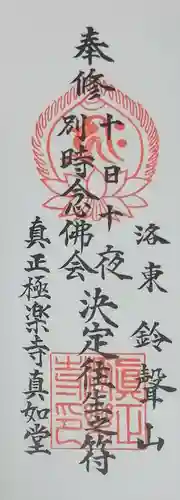 奉修
十日十夜
別時念佛会
決定往生之符
洛東 鈴聲山
真正極楽寺真如堂